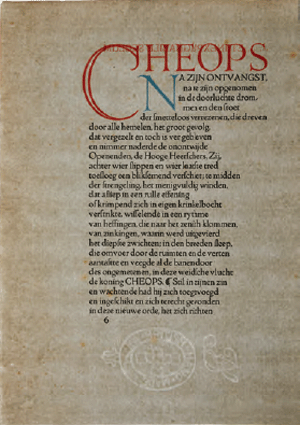 CHEOPS
NA ZIJN ONTVANGST,
na te zijn opgenomen
in de doorluchte drom,
men en den stoet
der smetteloos verrezenen, die dreven
door alle hemelen, het groot gevolg,
dat vergezelt en toch is vergeleven
en nummer naderde de onontwijde
Openenden, de Hooge Heerschers, Zij,
achter wier slippen en wier laatste tred
toesloeg een bliksemend verschiet; te midden
der strengeling, het menigvuldig winden,
dat afliep in een rulle effening
of krimpend zich in eigen kronkelbocht
verstrikte, wisselende in een rythme
van heffingen, die naar het zenith klommen,
van zinkingen, waarin werd uitgevierd
het diepste zwichten; in den breeden sleep,
die omvoer door de ruimten en de verten
aantastte en veegde al de banendoor
des ongemetenen, in deze weidsche vlucht
de koning CHEOPS. ¶ Stil in zijnen zin
en wachtende had hij zich toegevoegd
en ingeschikt en zich terecht gevonden
in deze nieuwe orde, het zich richten
6